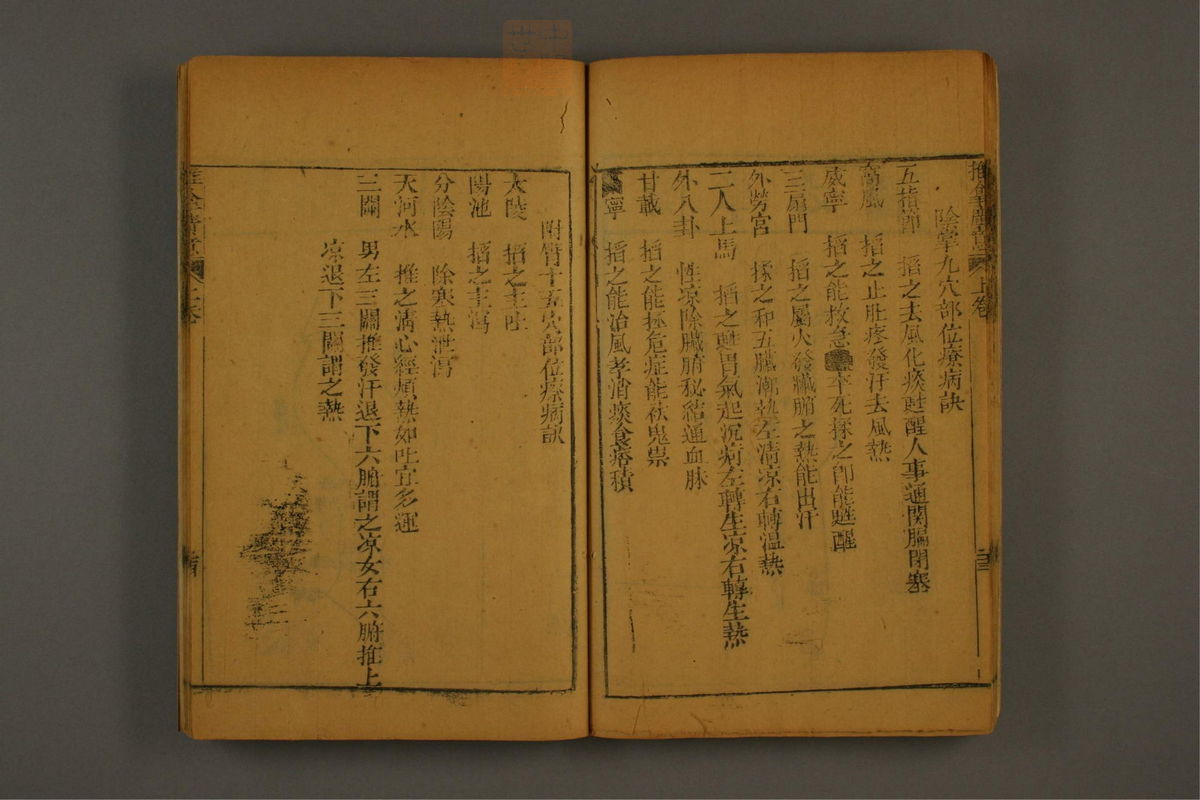 上卷
陰掌九穴部位療病訣
五指節 掐之去風化痰甦醒人事通関膈閉塞
風 掐之止肚疼發汗去風熱
威寧 掐之能救急卒死揉之即能甦醒
三扇門 掐之屬火發臟腑之熱能出汗
外勞宮 揉之和五臟潮熱左清凉右轉温熱
二人上馬 掐之甦胃氣起沉疴左轉生凉右轉生熱
外八卦 性凉除臟腑秘結通血脉
甘載 掐之能拯危症能祛鬼祟
寧 掐之能治風孝消痰食痞積
附臂十五穴部位療病訣
大陵 掐之主吐
陽池 掐之主瀉
分陰陽 除寒熱泄瀉
天河水 推之清心經煩熱如吐宜多運
三關 男左三關推發汗退下六腑謂之凉女右六腑推上
凉退下三關謂之熱